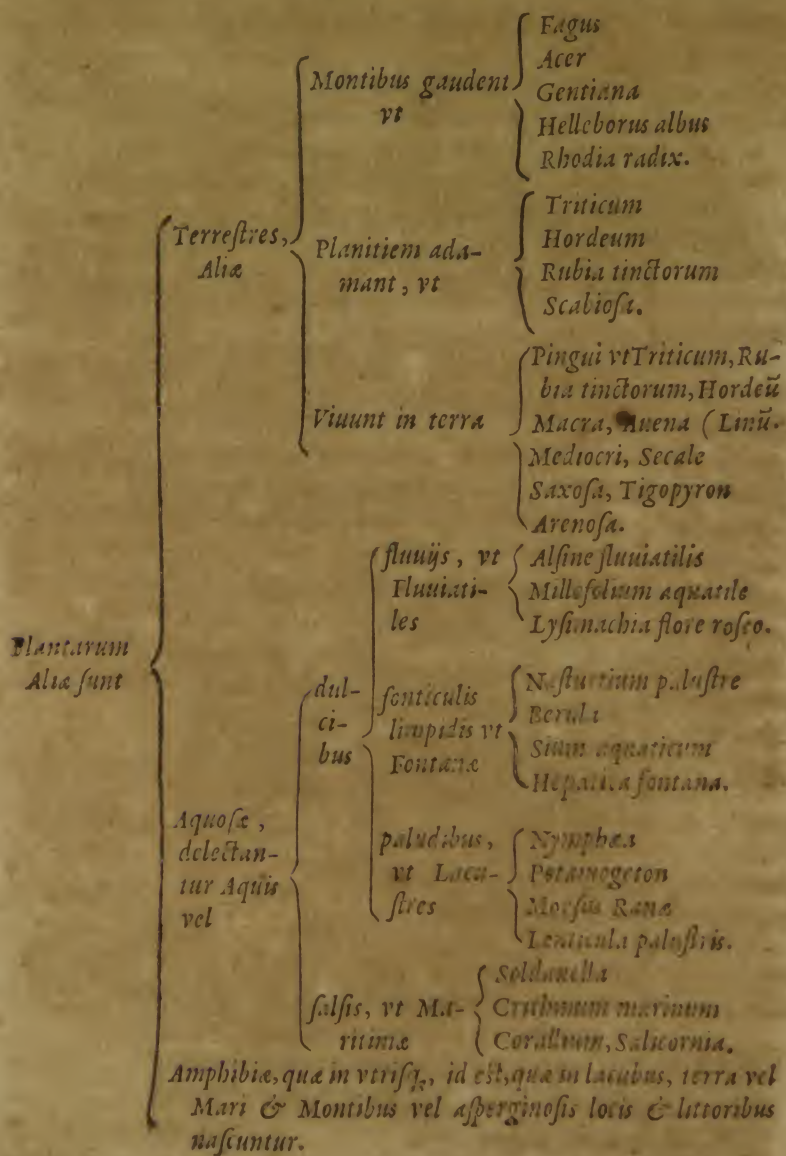 Plantarum
Aliæ sunt
Terrestres,
Aliæ
Montibus gaudent
vt
Fagus
Acer
Gentiana
Helleborus albus
Rhodia radix.
Planitiem ada-
mant, vt
Triticum
Hordeum
Rubia tinctorum
Scabiosa.
Viuunt in terra
Pingui vt Triticum, Ru-
bia tinctorum, Hordeū
Macra, Auena (Linū.
Mediocri, Secale
Saxosa, Tigopyron
Arenosa.
Aquosæ,
delectan-
tur Aquis
vel
dul-
ci-
bus
fluuijs, vt
Fluuiati-
les
Alsine fluuiatilis
Millefolium aquatile
Lysimachia flore roseo.
fonticulis
limpidis vt
Fontanæ
Nasturtium palustre
Berula
Sium aquaticum
Hepatica fontana.
paludibus,
vt Lacu-
stres
Nymphæa
Potamogeton
Morsus Ranæ
Lenticula palustris.
salsis, vt Ma-
ritimæ
Soldanella
Crithmum marinum
Corallium, Salicornia.
Amphibiæ, quæ in vtrisq;, id est, quæ in lacubus, terra vel
Mari & Montibus vel asperginosis locis & littoribus
nascuntur.